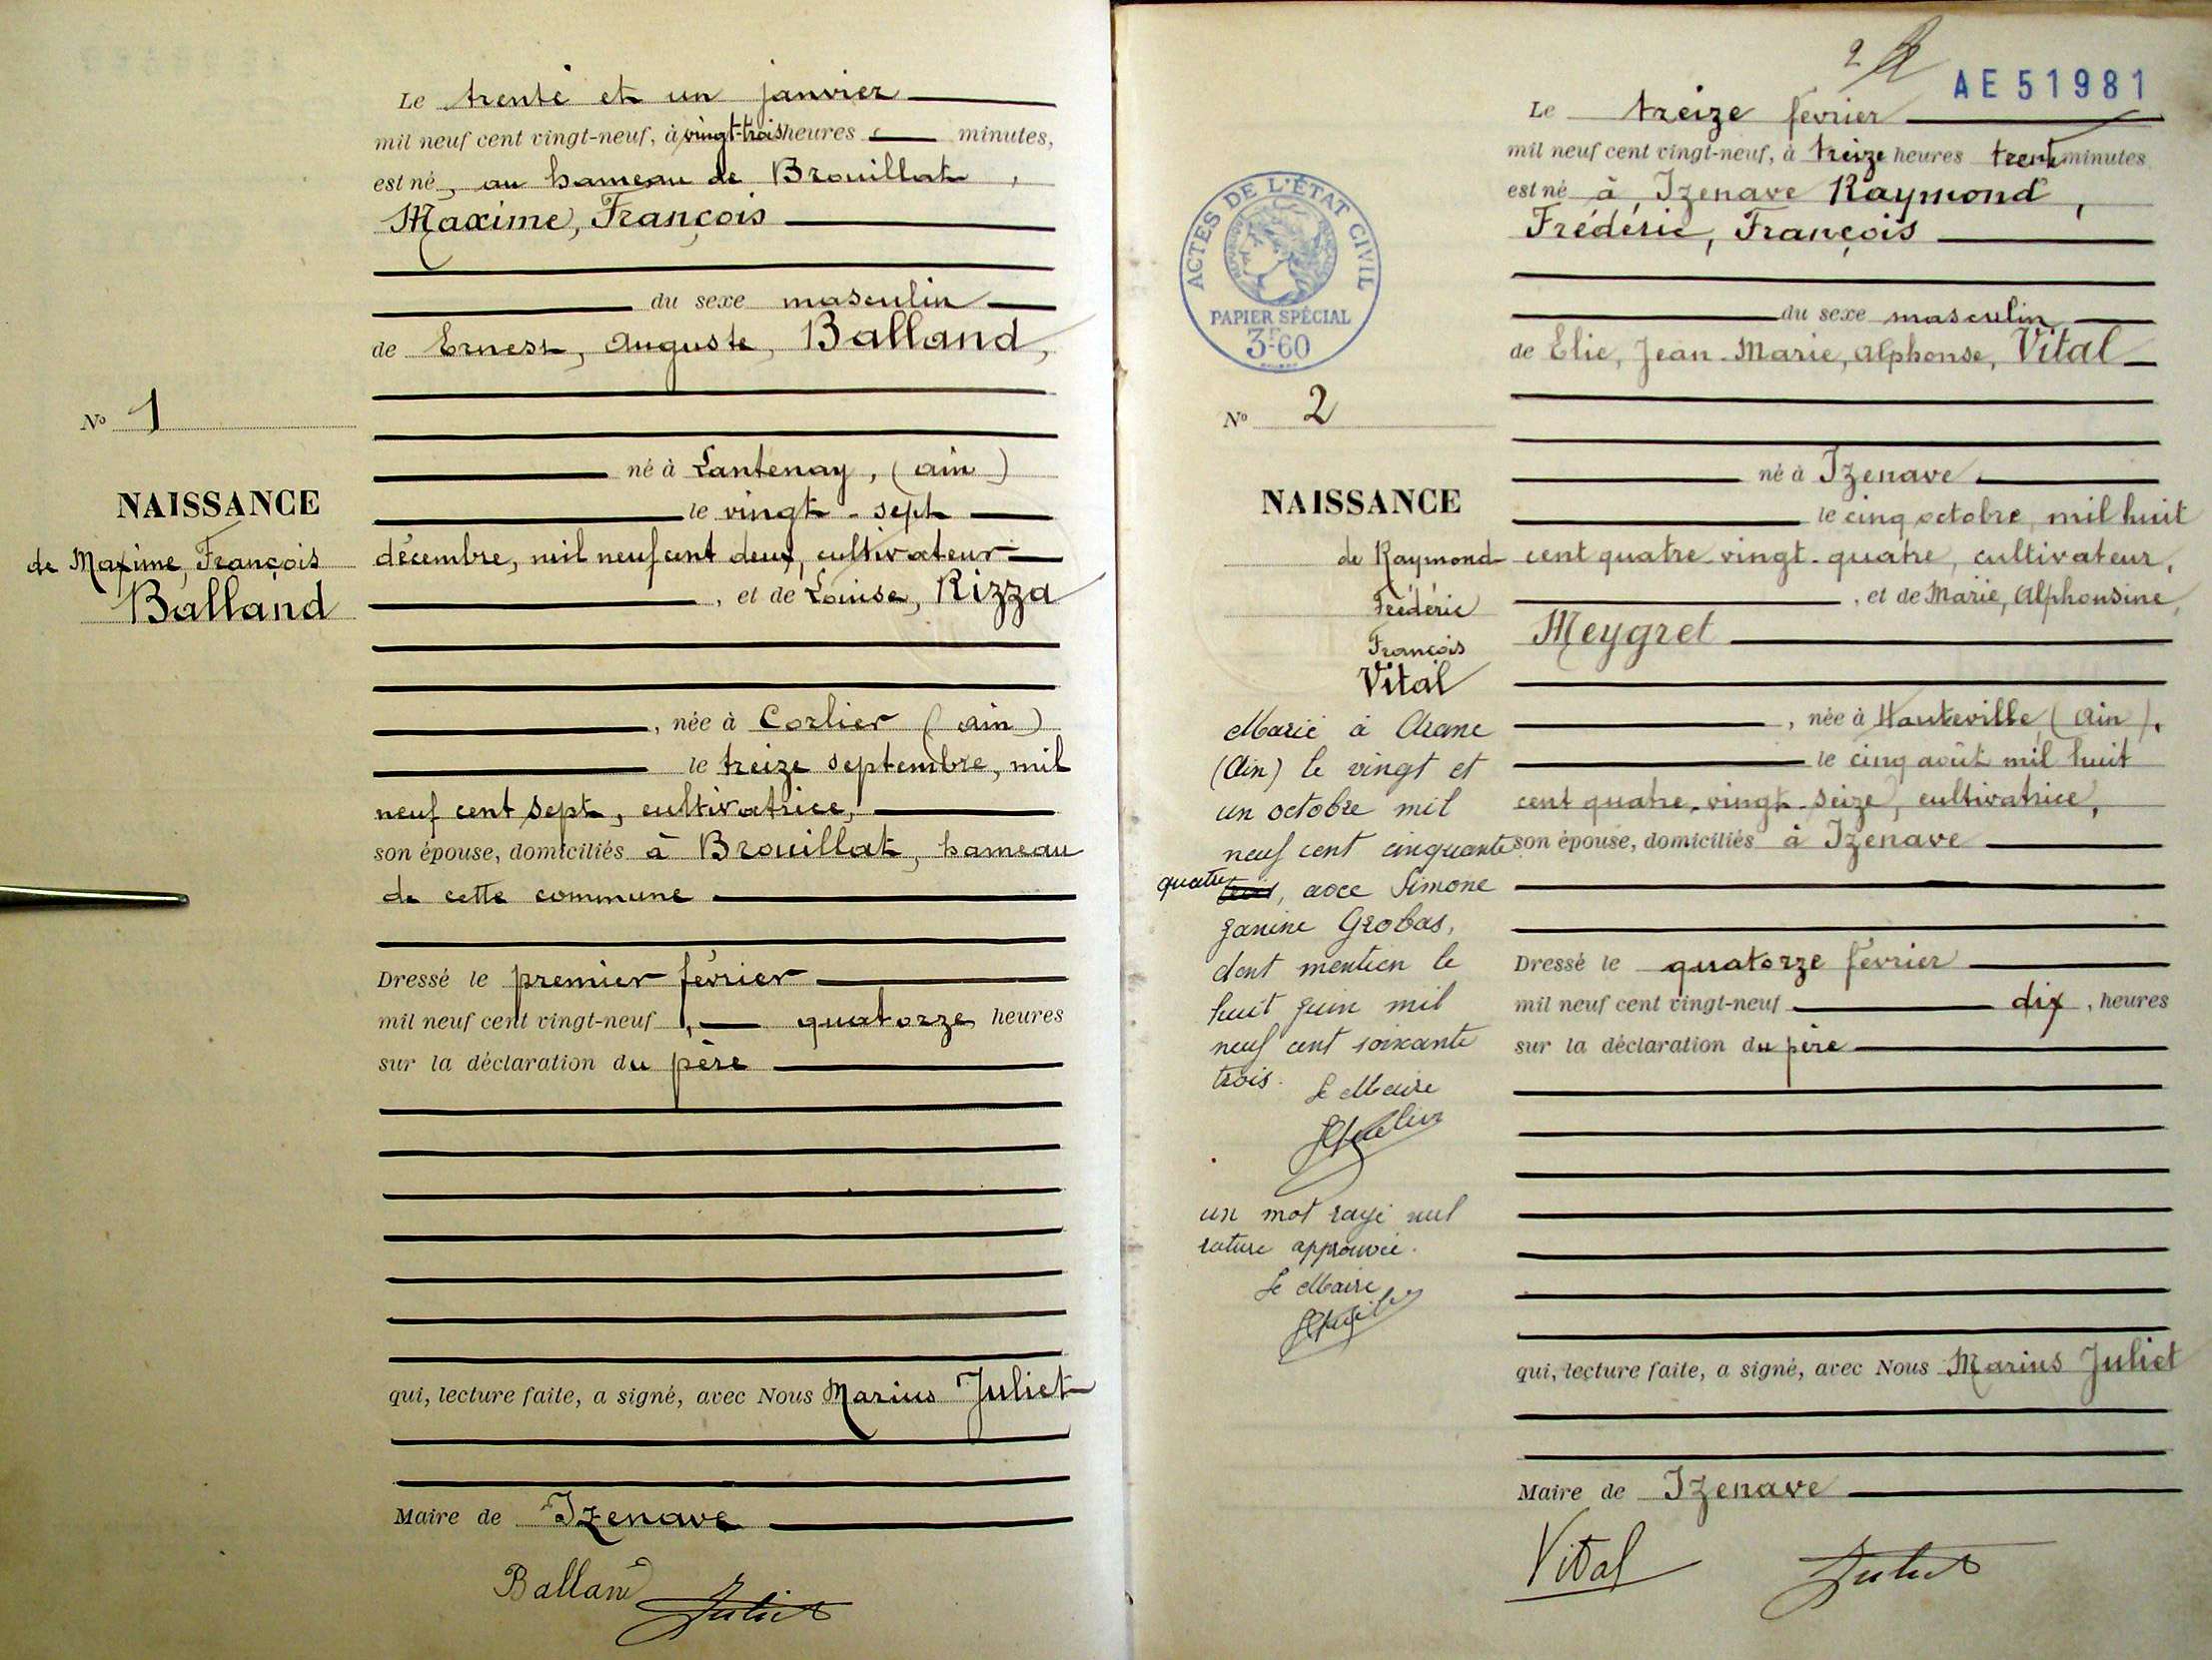 Le trente et un janvier
mil neuf cent vingt-neuf, à vingt-trois heures minutes,
est né, au hameau de Brouillat,
Maxime, François
du sexe masculin
de Ernest, Auguste, Balland,
No 1
né à Lantenay, (Ain)
NAISSANCE
le vingt-sept
de Maxime, François
décembre, mil neuf cent deux, cultivateur
Balland
, et de Louise, Rizza
, née à Corlier (Ain)
le treize septembre, mil
neuf cent sept, cultivatrice,
son épouse, domiciliés à Brouillat, hameau
de cette commune
Dressé le premier février
mil neuf cent vingt-neuf, quatorze heures
sur la déclaration du père
qui, lecture faite, a signé, avec Nous Marius Juliet
Maire de Izenave
Balland Juliet
2
AE 51981
Le treize février
mil neuf cent vingt-neuf, à treize heures trente minutes
est né à Izenave Raymond,
Frédéric, François
ACTES DE L'ÉTAT CIVIL
PAPIER SPÉCIAL
3F60
du sexe masculin
de Elie, Jean-Marie, Alphonse, Vital
No 2
né à Izenave
NAISSANCE
le cinq octobre, mil huit
de Raymond
cent quatre-vingt-quatre, cultivateur,
Frédéric
, et de Marie, Alphonsine,
François
Meygret
Vital
, née à Hauteville (Ain),
le cinq août mil huit
cent quatre-vingt-seize, cultivatrice,
son épouse, domiciliés à Izenave
Dressé le quatorze février
mil neuf cent vingt-neuf dix, heures
sur la déclaration du père
Marié à Arane
(Ain) le vingt et
un octobre mil
neuf cent cinquante
quatre trois, avec Simone
Janine Grobas,
dont mention le
huit juin mil
neuf cent soixante
trois.
Le Maire
un mot rayé nul
rature approuvée.
Le Maire
qui, lecture faite, a signé, avec Nous Marius Juliet
Maire de Izenave
Vital Juliet